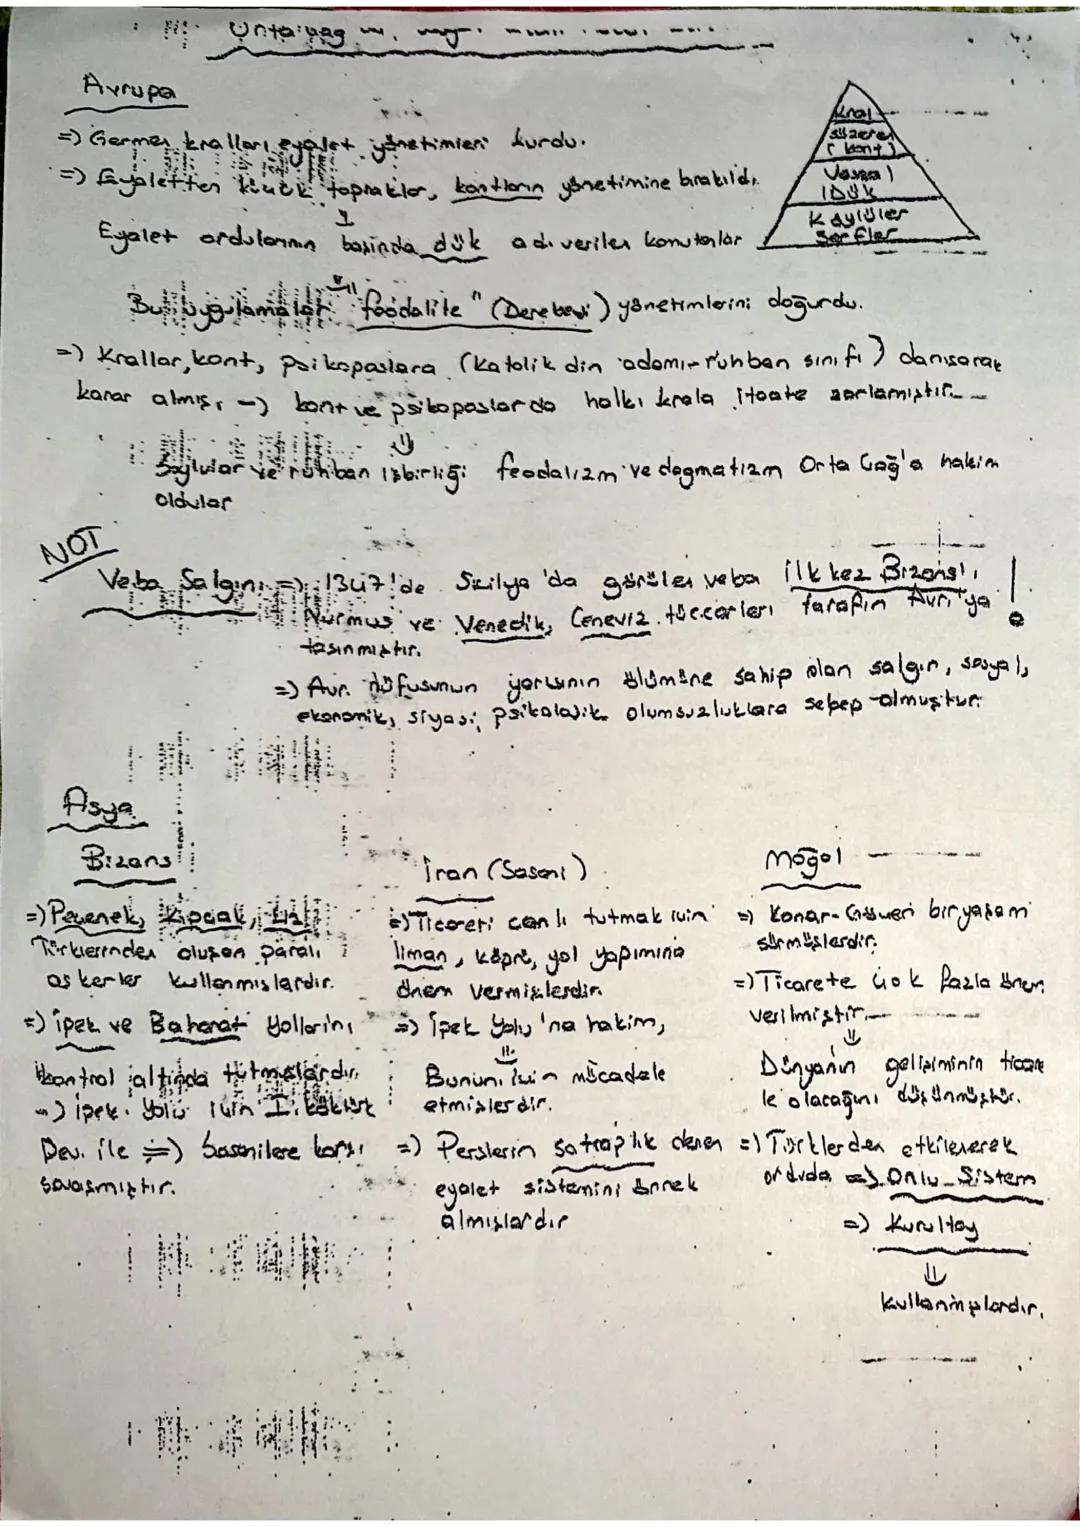 Ortaçağ
Avrupa
=) Germen kralları eyalet yönetimleri kurdu.
=) Eyaletten küçük topraklar, kontların yönetimine bırakıldı.
Eyalet ordularının başında dük adı verilen komutanlar
Bu uygulamalar "feodalite" (Derebeyi) yönetimlerini doğurdu.
Kral
süzeren
(kont)
Vassal
(Dük
Köylüler
Serfler
=) Krallar, kont, psikopaslara (katolik din adamı-ruhban sınıfı) danışarak
karar almış, -) kont ve psikopaslar da halkı krala itaate zorlamıştır.
Soylular ve ruhban işbirliği feodalizm ve dogmatizm Orta Çağ'a hakim
oldular
NOT
Veba Salgını =) 1347'de Sicilya'da görülen veba ilk kez Bizans'ı
vurmuş ve Venedik, Ceneviz tüccarları tarafın Avr.'ya !
taşınmıştır.
=) Avr. nüfusunun yarısının ölümüne sahip olan salgın, sosyal,
ekonomik, siyasi, psikolojik olumsuzluklara sebep olmuştur.
Asya
Bizans
=) Peçenek, Kıpçak, Uz
Türklerinden oluşan paralı
askerler kullanmışlardır.
=) İpek ve Baharat Yollarını
kontrol altında tutmuşlardır.
=) İpek Yolu için I. Köktürk
Dev. ile =) Sasanilere karşı
savaşmıştır.
İran (Sasani)
=) Ticareti canlı tutmak için
liman, köprü, yol yapımına
önem vermişlerdir.
=) İpek Yolu'na hakim,
Bunun için mücadele
etmişlerdir.
=) Perslerin satraplık denen
eyalet sistemini örnek
almışlardır
Moğol
=) Konar-Göçer bir yaşam
sürmüşlerdir.
=) Ticarete çok fazla önem
verilmiştir.
Dünyanın gelişiminin ticaret
le olacağını düşünmüştür.
=) Türklerden etkilenerek
orduda =) Onlu Sistem
=) Kurultay
kullanmışlardır.